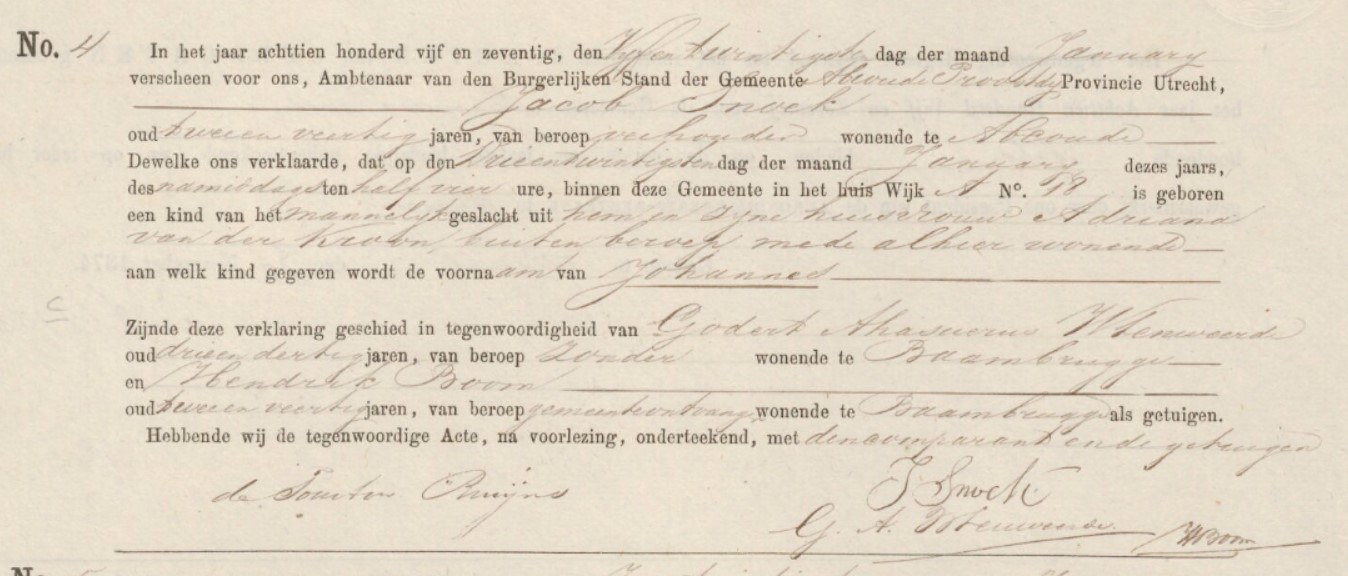 No. 4 In het jaar achttien honderd vijf en zeventig, den Vyfentwintigste dag der maand January
verscheen voor ons, Ambtenaar van den Burgerlijken Stand der Gemeente Abcoude Proostdy Provincie Utrecht,
Jacob Snoek
oud tweeen veertig jaren, van beroep veehouder wonende te Abcoude
Dewelke ons verklaarde, dat op den Drieentwintigsten dag der maand January dezes jaars,
des namiddags ten half vier ure, binnen deze Gemeente in het huis Wijk A No. is geboren
een kind van het mannelyk geslacht uit hem en zyne huisvrouw Adriana
van der Kroon, buiten beroep mede alhier wonende
aan welk kind gegeven wordt de voornaam van Johannes
C
Zijnde deze verklaring geschied in tegenwoordigheid van Godert Ahasuerus Utenweerde
oud drieen dertig jaren, van beroep zonder wonende te Baambrugge
en Hendrik Boom
oud tweeen veertig jaren, van beroep gemeenteontvanger wonende te Baambrugge als getuigen.
Hebbende wij de tegenwoordige Acte, na voorlezing, onderteekend, met den comparant en de getuigen
J Snoek
G. A. Utenweerde HBoom